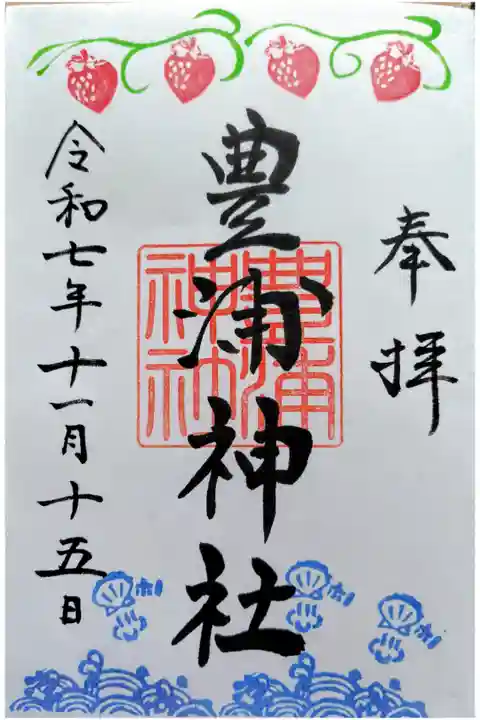 奉拝
豊浦神社
豊浦
神社
令和七年十一月十五日
ホ
ホ
ホ